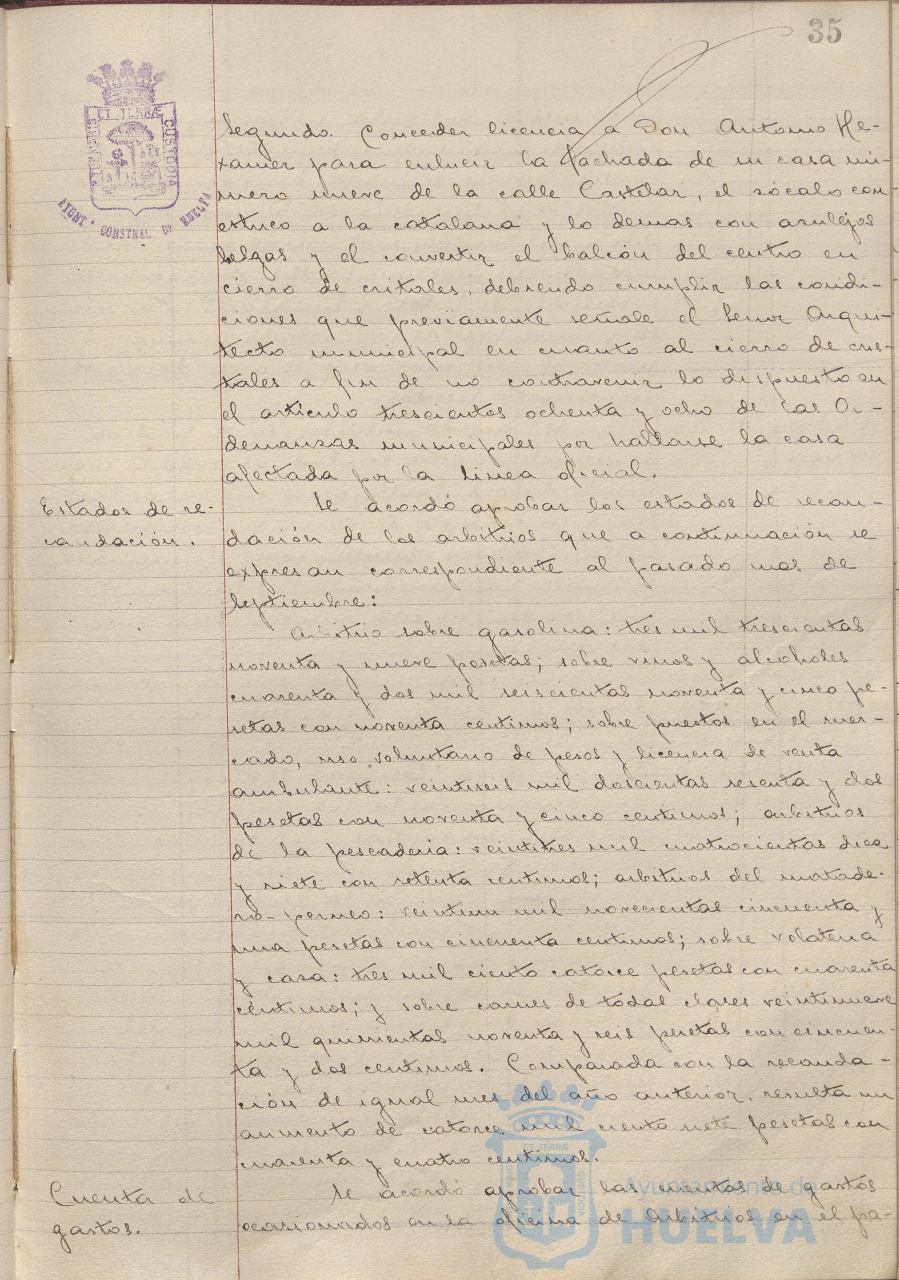 35
PORTUS MARIS ET TERRÆ CUSTODIA
AYUNT. CONSTNAL DE HUELVA
Segundo. Conceder licencia a Don Antonio He-
xamer para enlucir la fachada de su casa nú-
mero nueve de la calle Castelar, el zócalo con
estuco a la catalana y lo demas con azulejos
belgas y el convertir el balcón del centro en
cierro de cristales, debiendo cumplir las condi-
ciones que previamente señale el Señor Arqui-
tecto municipal en cuanto al cierro de cris-
tales a fin de no contravenir lo dispuesto en
el artículo trescientos ochenta y ocho de las Or-
denanzas municipales por hallarse la casa
afectada por la linea oficial.
Estados de re-
caudación.
Se acordó aprobar los estados de recau-
dación de los arbitrios que a continuación se
expresan correspondiente al pasado mes de
Septiembre:
Arbitrio sobre gasolina: tres mil trescientas
noventa y nueve pesetas; sobre vinos y alcoholes
cuarenta y dos mil seiscientas noventa y cinco pe-
setas con noventa centimos; sobre puestos en el mer-
cado, uso voluntario de pesos y licencia de venta
ambulante: veintiseis mil doscientas sesenta y dos
pesetas con noventa y cinco centimos; arbitrios
de la pescadería: veintitres mil cuatrocientas diez
y siete con setenta centimos; arbitrios del matade-
ro-perneo: veintiun mil novecientas cincuenta y
una pesetas con cincuenta centimos; sobre volateria
y casa: tres mil ciento catorce pesetas con cuarenta
céntimos; y sobre carnes de todas clases veintinueve
mil quinientas noventa y seis pesetas con cincuen-
ta y dos centimos. Comparada con la recauda-
ción de igual mes del año anterior, resulta un
aumento de catorce mil ciento siete pesetas con
cuarenta y cuatro centimos.
Cuenta de
gastos.
Se acordó aprobar las cuentas de gastos
ocasionados en la oficina de Arbitrios en el pa-
Ayuntamiento de
HUELVA